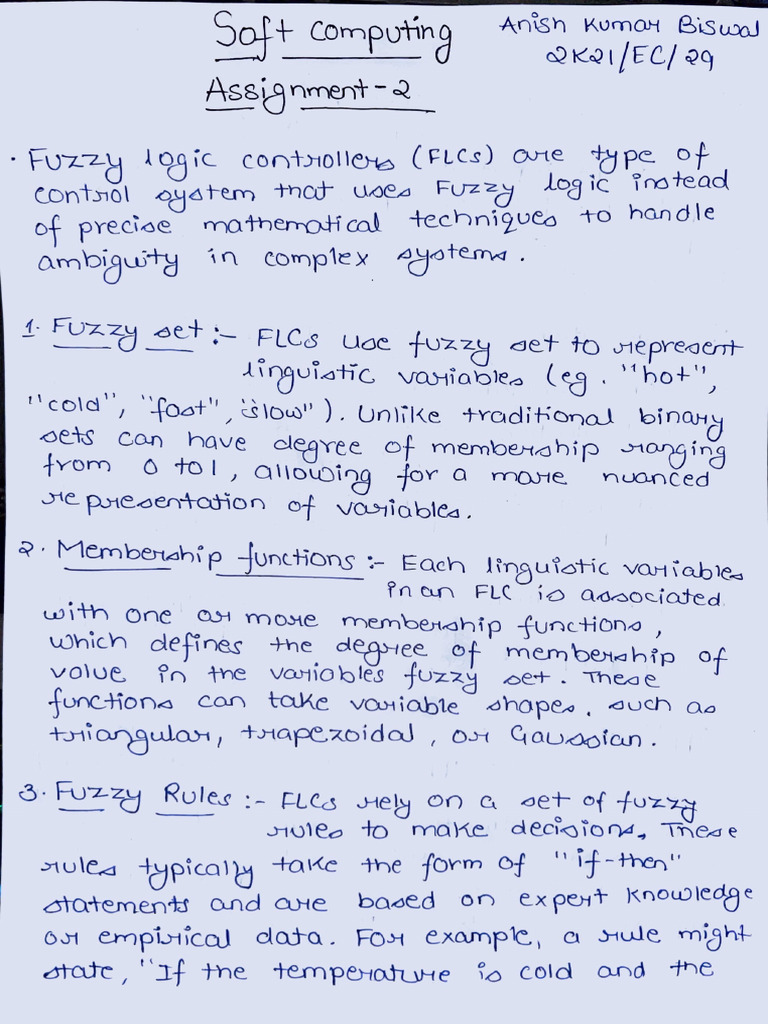 Soft computing
Anish Kumar Biswal
2K21/EC/29
Assignment-2
· Fuzzy logic controllers (FLCs) are type of
control system that uses Fuzzy logic instead
of precise mathematical techniques to handle
ambiguity in complex systems.
1. Fuzzy set :- FLCs use fuzzy set to represent
linguistic variables (eg. "hot",
"cold", "fast", "slow"). Unlike traditional binary
sets can have degree of membership ranging
from 0 to 1, allowing for a more nuanced
representation of variables.
2. Membership functions :- Each linguistic variables
in an FLC is associated
with one or more membership functions,
which defines the degree of membership of
value in the variables fuzzy set. These
functions can take variable shapes, such as
triangular, trapezoidal, or Gaussian.
3. Fuzzy Rules :- FLCs rely on a set of fuzzy
rules to make decisions, These
rules typically take the form of "if-then"
statements and are based on expert knowledge
or empirical data. For example, a rule might
state, "If the temperature is cold and the